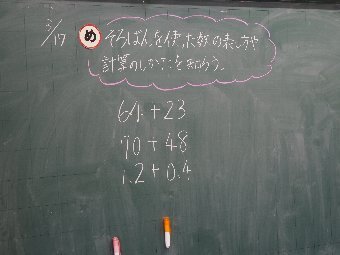 2/17
め
そろばんを使った数の表し方や
計算のしかたをまとめよう。
64+23
70+48
1.2+0.4